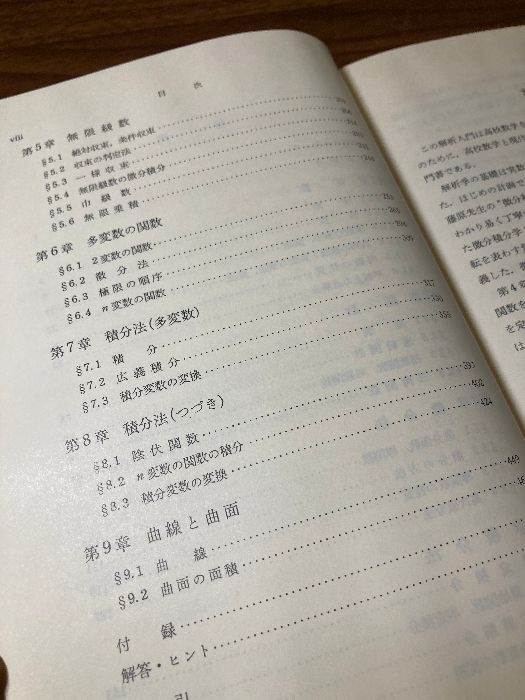 viii
目 次
第5章 無限級数
§5.1 絶対収束，条件収束
§5.2 収束の判定法
§5.3 一様収束
§5.4 無限級数の微分積分
§5.5 巾級数
§5.6 無限乗積
第6章 多変数の関数
§6.1 2変数の関数
§6.2 微分法
§6.3 極限の順序
§6.4 n変数の関数
第7章 積分法(多変数)
§7.1 積分 317
§7.2 広義積分 330
§7.3 積分変数の変換 355
第8章 積分法(つづき)
§8.1 陰伏関数 391
§8.2 n変数の関数の積分 402
§8.3 積分変数の変換 424
第9章 曲線と曲面
§9.1 曲線 449
§9.2 曲面の面積
付録
解答・ヒント
引
この解析入門は高校数学
のために，高校数学と
門書である．
解析学の基礎は実数
た．はじめの計画で
藤原先生の"微分
わかり易く丁寧
た微分積分学
転を表わす
義した．
第4章
関数を
を定
は